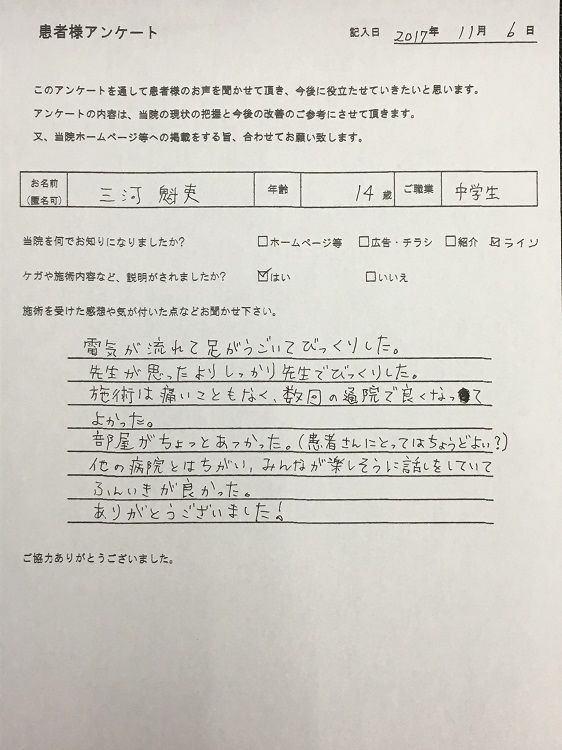 患者様アンケート
記入日 2017年 11月 6日
このアンケートを通して患者様のお声を聞かせて頂き、今後に役立たせていきたいと思います。
アンケートの内容は、当院の現状の把握と今後の改善のご参考にさせて頂きます。
又、当院ホームページ等への掲載をする旨、合わせてお願い致します。
お名前(匿名可) 三河 魁 年齢 14歳 ご職業 中学生
当院を何でお知りになりましたか? □ホームページ等 □広告・チラシ □紹介 ☑ライン
ケガや施術内容など、説明がされましたか? ☑はい □いいえ
施術を受けた感想や気が付いた点などお聞かせ下さい。
電気が流れて足がうごいてびっくりした。
先生が思ったよりしっかり先生でびっくりした。
施術は痛いこともなく、数回の通院で良くなって
よかった。
部屋がちょっとあつかった。(患者さんにとってはちょうどよい?)
他の病院とはちがい、みんなが楽しそうに話しをしていて
ふんいきが良かった。
ありがとうございました!
ご協力ありがとうございました。